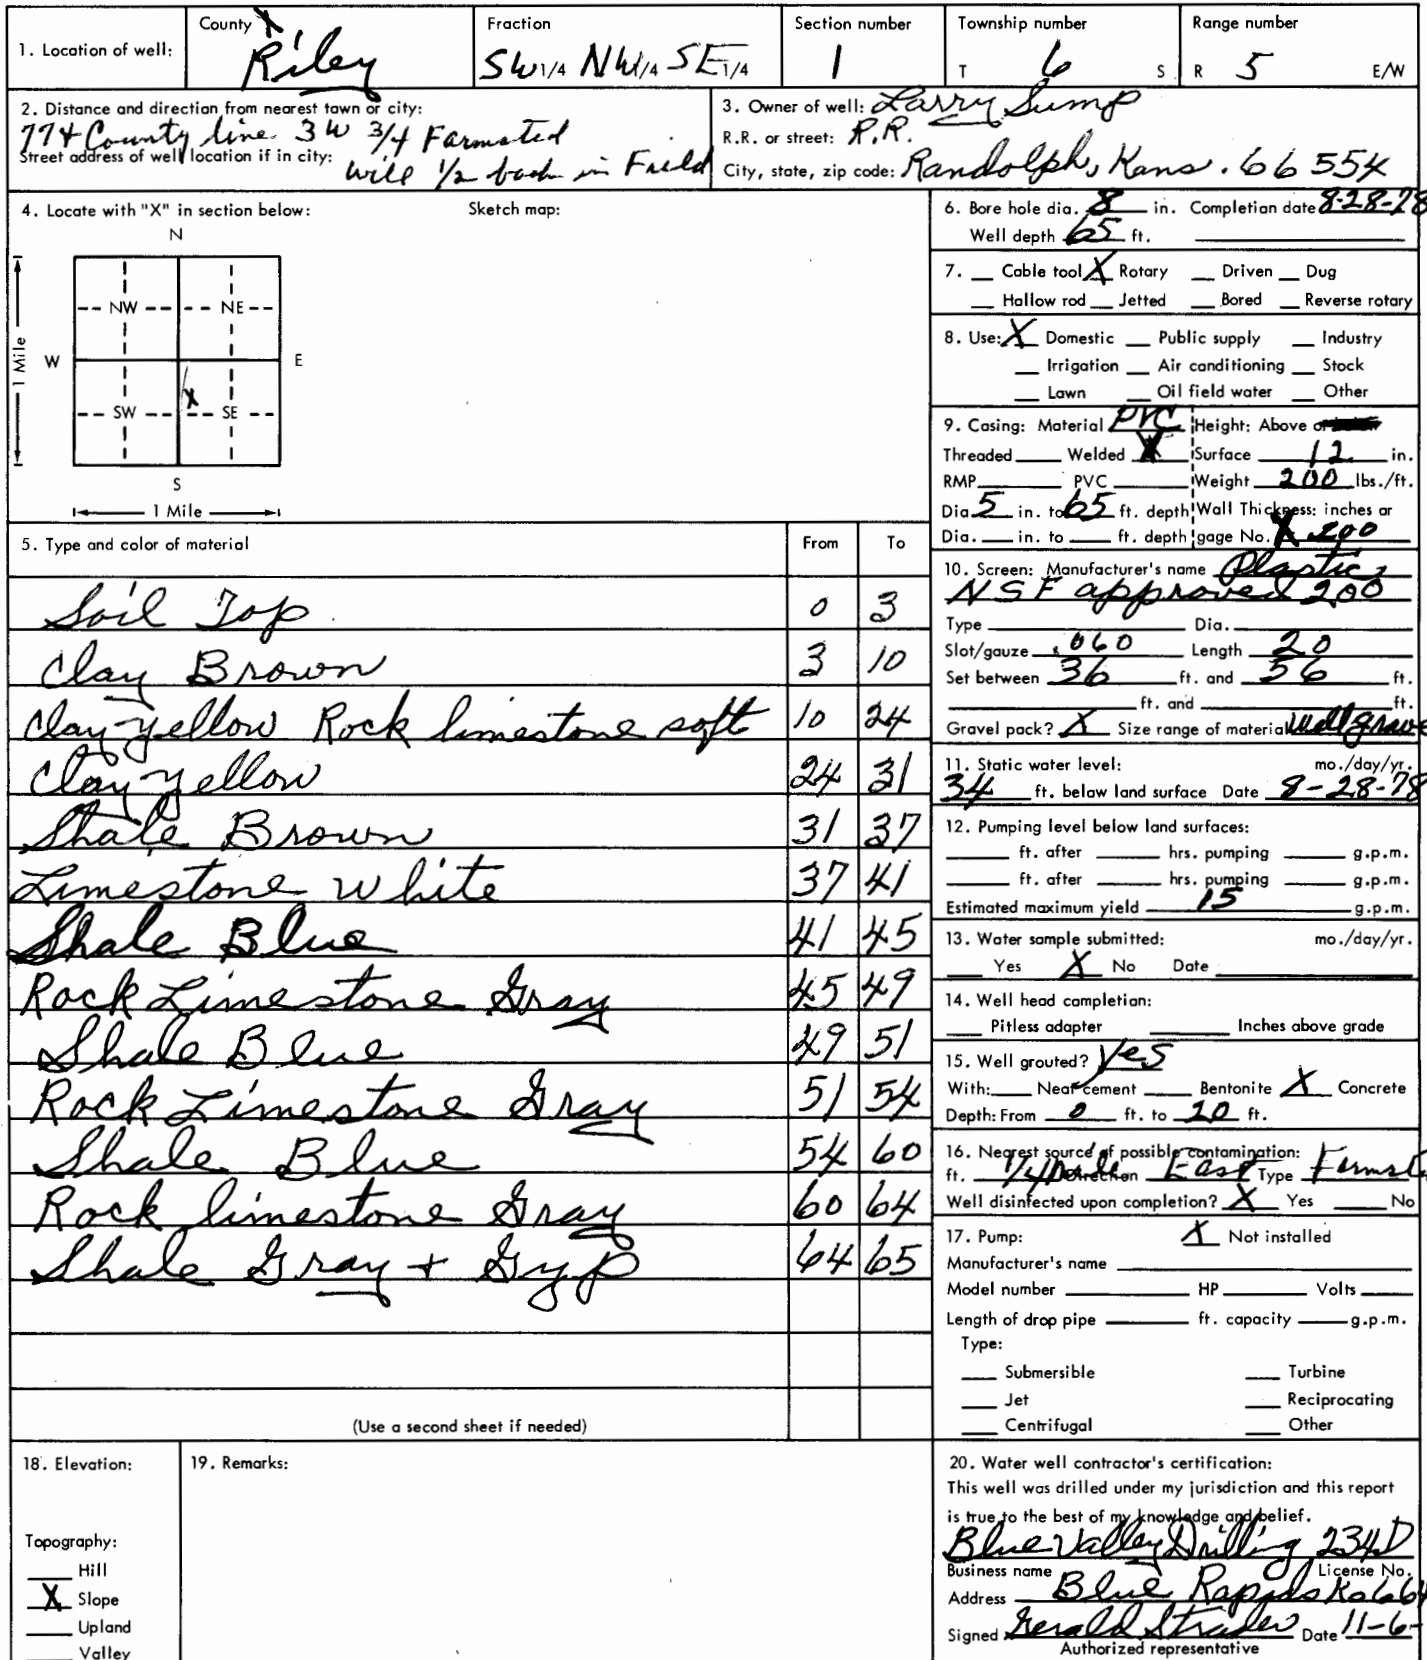 1. Location of well: County X Riley Fraction SW 1/4 NW 1/4 SE 1/4 Section number 1 Township number T 6 S Range number R 5 E/W
2. Distance and direction from nearest town or city:
77 & County line 3W 3/4 Farmsted
Street address of well location if in city:
will 1/2 back in Faild
3. Owner of well: Larry Sump
R.R. or street: R.R.
City, state, zip code: Randolph, Kans. 66554
4. Locate with "X" in section below: Sketch map:
N
NW NE
W E
X
SW SE
S
1 Mile
1 Mile
5. Type and color of material From To
Soil Top 0 3
Clay Brown 3 10
Clay-yellow Rock limestone soft 10 24
Clay-yellow 24 31
Shale Brown 31 37
Limestone White 37 41
Shale Blue 41 45
Rock Limestone Gray 45 49
Shale Blue 49 51
Rock Limestone Gray 51 54
Shale Blue 54 60
Rock limestone Gray 60 64
Shale Gray + Gyp 64 65
(Use a second sheet if needed)
6. Bore hole dia. 8 in. Completion date 8-28-78
Well depth 65 ft.
7. Cable tool X Rotary Driven Dug
Hallow rod Jetted Bored Reverse rotary
8. Use: X Domestic Public supply Industry
Irrigation Air conditioning Stock
Lawn Oil field water Other
9. Casing: Material PVC Height: Above or
Threaded Welded X Surface 12 in.
RMP PVC Weight 200 lbs./ft.
Dia 5 in. to 65 ft. depth Wall Thickness: inches or
Dia. in. to ft. depth gage No. X 200
10. Screen: Manufacturer's name Plastic
NSF approved 200
Type Dia.
Slot/gauze .060 Length 20
Set between 36 ft. and 56 ft.
ft. and ft.
Gravel pack? X Size range of material well grave
11. Static water level: mo./day/yr.
34 ft. below land surface Date 8-28-78
12. Pumping level below land surfaces:
ft. after hrs. pumping g.p.m.
ft. after hrs. pumping g.p.m.
Estimated maximum yield 15 g.p.m.
13. Water sample submitted: mo./day/yr.
Yes X No Date
14. Well head completion:
Pitless adapter Inches above grade
15. Well grouted? Yes
With: Neat cement Bentonite X Concrete
Depth: From 0 ft. to 10 ft.
16. Nearest source of possible contamination:
ft. 1/4 Direction East Type
Well disinfected upon completion? X Yes No
17. Pump: X Not installed
Manufacturer's name
Model number HP Volts
Length of drop pipe ft. capacity g.p.m.
Type:
Submersible Turbine
Jet Reciprocating
Centrifugal Other
18. Elevation:
Topography:
Hill
X Slope
Upland
Valley
19. Remarks:
20. Water well contractor's certification:
This well was drilled under my jurisdiction and this report
is true to the best of my knowledge and belief.
Blue Valley Drilling 234D
Business name License No.
Address Blue Rapids Ks 664
Signed Gerald Strader Date 11-6-
Authorized representative